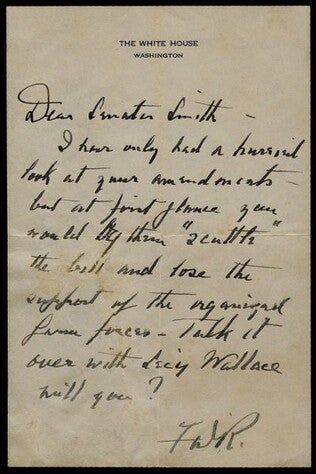 THE WHITE HOUSE
WASHINGTON
Dear Senator Smith -
I have only had a hurried
look at your amendments -
but at first glance you
would by them "scuttle"
the bill and lose the
support of the organized
farm forces - Talk it
over with Secy Wallace
will you?
FDR.